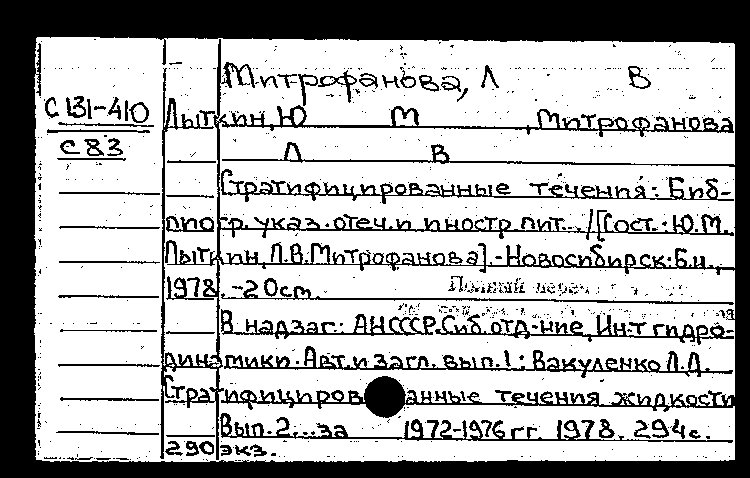 Митрофанова, Л В
С 131-410
С 83
Лыткин, Ю М , Митрофанова
Л В
Стратифицированные течения: Биб-
лиогр. указ. отеч. и иностр. лит... /[Сост.: Ю.М.
Лыткин, Л.В. Митрофанова]. - Новосибирск: Б.и.,
1978. - 20 см.
Полный переч
В надзаг.: АН СССР. Сиб. отд-ние, Ин-т гидро-
динамики. Авт. и загл. вып. 1: Вакуленко Л.Д.
Стратифицированные течения жидкости
Вып. 2... за 1972-1976 гг. 1978. 294 с.
290 экз.